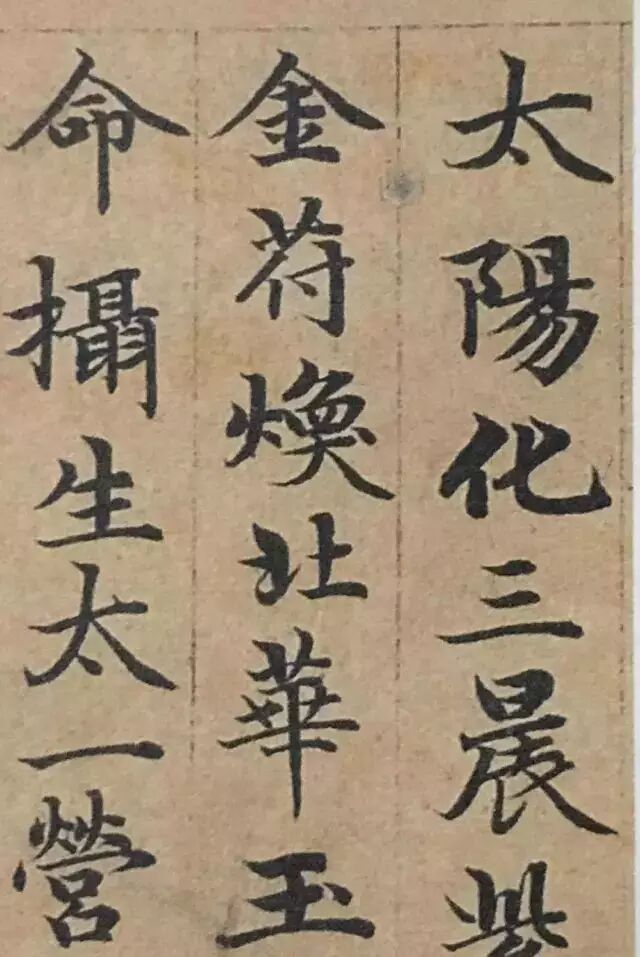 太陽化三晨紫
金苻煥北華玉
命攝生太一營